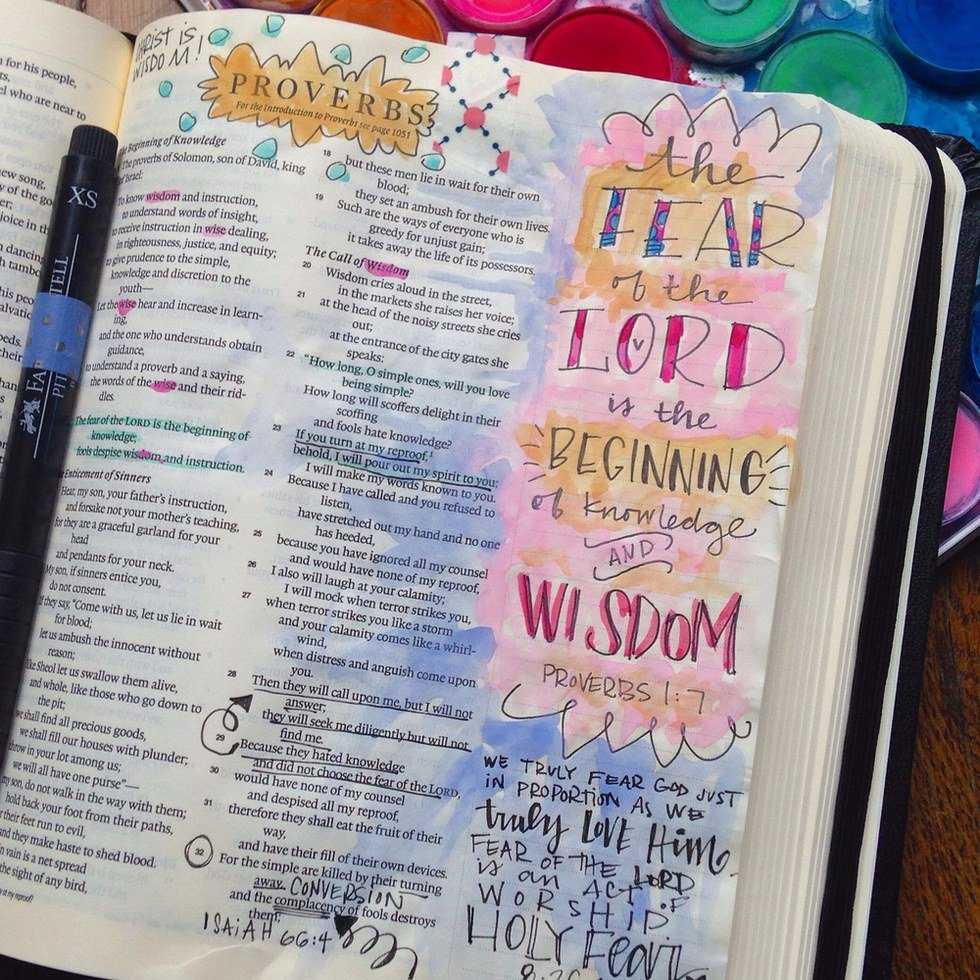 for his people,
el who are near to
new song,
joice in th
XS
TELL
PIT
CHRIST IS
WISDOM!
PROVERBS
For the Introduction to Proverbs see page 1051
Beginning of Knowledge
The proverbs of Solomon, son of David, king
of Israel:
To know wisdom and instruction,
to understand words of insight,
to receive instruction in wise dealing,
in righteousness, justice, and equity;
to give prudence to the simple,
knowledge and discretion to the
youth—
Let the wise hear and increase in learn-
ing,
and the one who understands obtain
guidance,
to understand a proverb and a saying,
the words of the wise and their rid-
dles.
The fear of the LORD is the beginning of
knowledge;
fools despise wisdom and instruction.
Enticement of Sinners
Hear, my son, your father's instruction,
and forsake not your mother's teaching,
for they are a graceful garland for your
head
and pendants for your neck.
My son, if sinners entice you,
do not consent.
If they say, "Come with us, let us lie in wait
for blood;
let us ambush the innocent without
reason;
like Sheol let us swallow them alive,
and whole, like those who go down to
the pit;
we shall find all precious goods,
we shall fill our houses with plunder;
throw in your lot among us;
we will all have one purse"—
my son, do not walk in the way with them;
hold back your foot from their paths,
for their feet run to evil,
and they make haste to shed blood.
in vain is a net spread
the sight of any bird,
18 but these men lie in wait for their own
blood;
they set an ambush for their own lives.
19 Such are the ways of everyone who is
greedy for unjust gain;
it takes away the life of its possessors.
The Call of Wisdom
20 Wisdom cries aloud in the street,
in the markets she raises her voice;
21 at the head of the noisy streets she cries
out;
at the entrance of the city gates she
speaks:
22 "How long, O simple ones, will you love
being simple?
How long will scoffers delight in their
scoffing
and fools hate knowledge?
23 If you turn at my reproof,¹
behold, I will pour out my spirit to you;
I will make my words known to you.
24 Because I have called and you refused to
listen,
have stretched out my hand and no one
has heeded,
25 because you have ignored all my counsel
and would have none of my reproof,
26 I also will laugh at your calamity;
I will mock when terror strikes you,
27 when terror strikes you like a storm
and your calamity comes like a whirl-
wind,
when distress and anguish come upon
you.
28 Then they will call upon me, but I will not
answer;
they will seek me diligently but will not
find me.
29 Because they hated knowledge
and did not choose the fear of the LORD,
30 would have none of my counsel
and despised all my reproof,
31 therefore they shall eat the fruit of their
way,
and have their fill of their own devices.
32 For the simple are killed by their turning
away, CONVERSION
and the complacency of fools destroys
them;
ISAIAH 66:4
the
FEAR
of the
LORD
is the
BEGINNING
of knowledge
AND
WISDOM
PROVERBS 1:7
WE TRULY FEAR GOD JUST
IN PROPORTION AS WE
truly LOVE Him.
FEAR OF THE LORD
is an ACT OF
WORSHIP
HOLY Fear